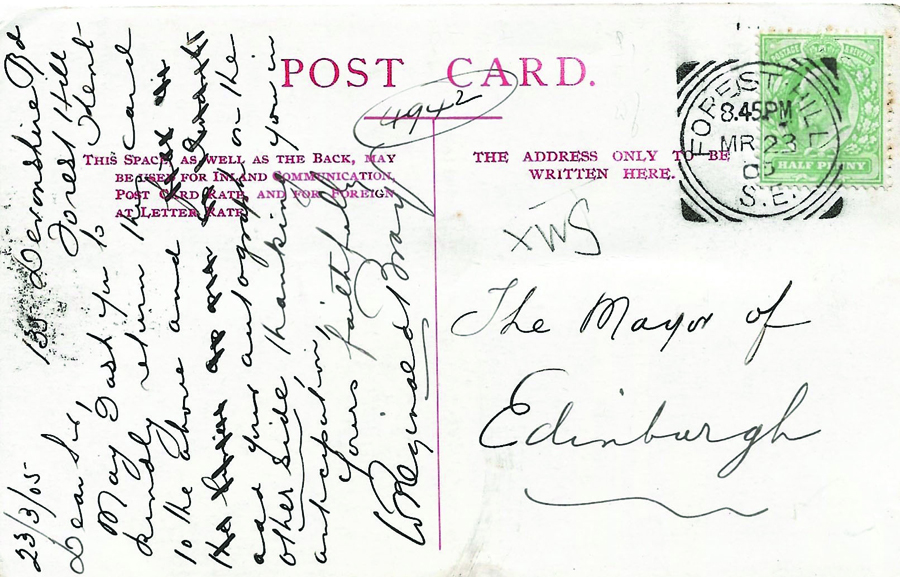 POST CARD.
4942
THIS SPACE, AS WELL AS THE BACK, MAY
BE USED FOR INLAND COMMUNICATION,
POST CARD RATE, AND FOR FOREIGN
AT LETTER RATE.
THE ADDRESS ONLY TO BE
WRITTEN HERE.
FOREST HILL
8.45PM
MR 23
05
S.E.
POSTAGE & REVENUE
HALF PENNY
The Mayor of
Edinburgh
23/3/05
135 Devonshire Rd
Forest Hill
Kent
Dear Sir,
May I ask you to
kindly return this card
to the above and
add your autograph on the
other side thanking you in
anticipation
Yours faithfully
W Reginald Bray